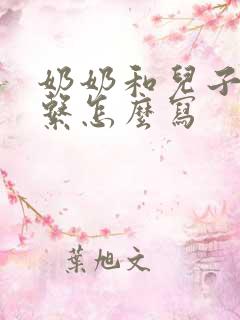 奶奶和兒子
繫怎麼寫
葉旭文